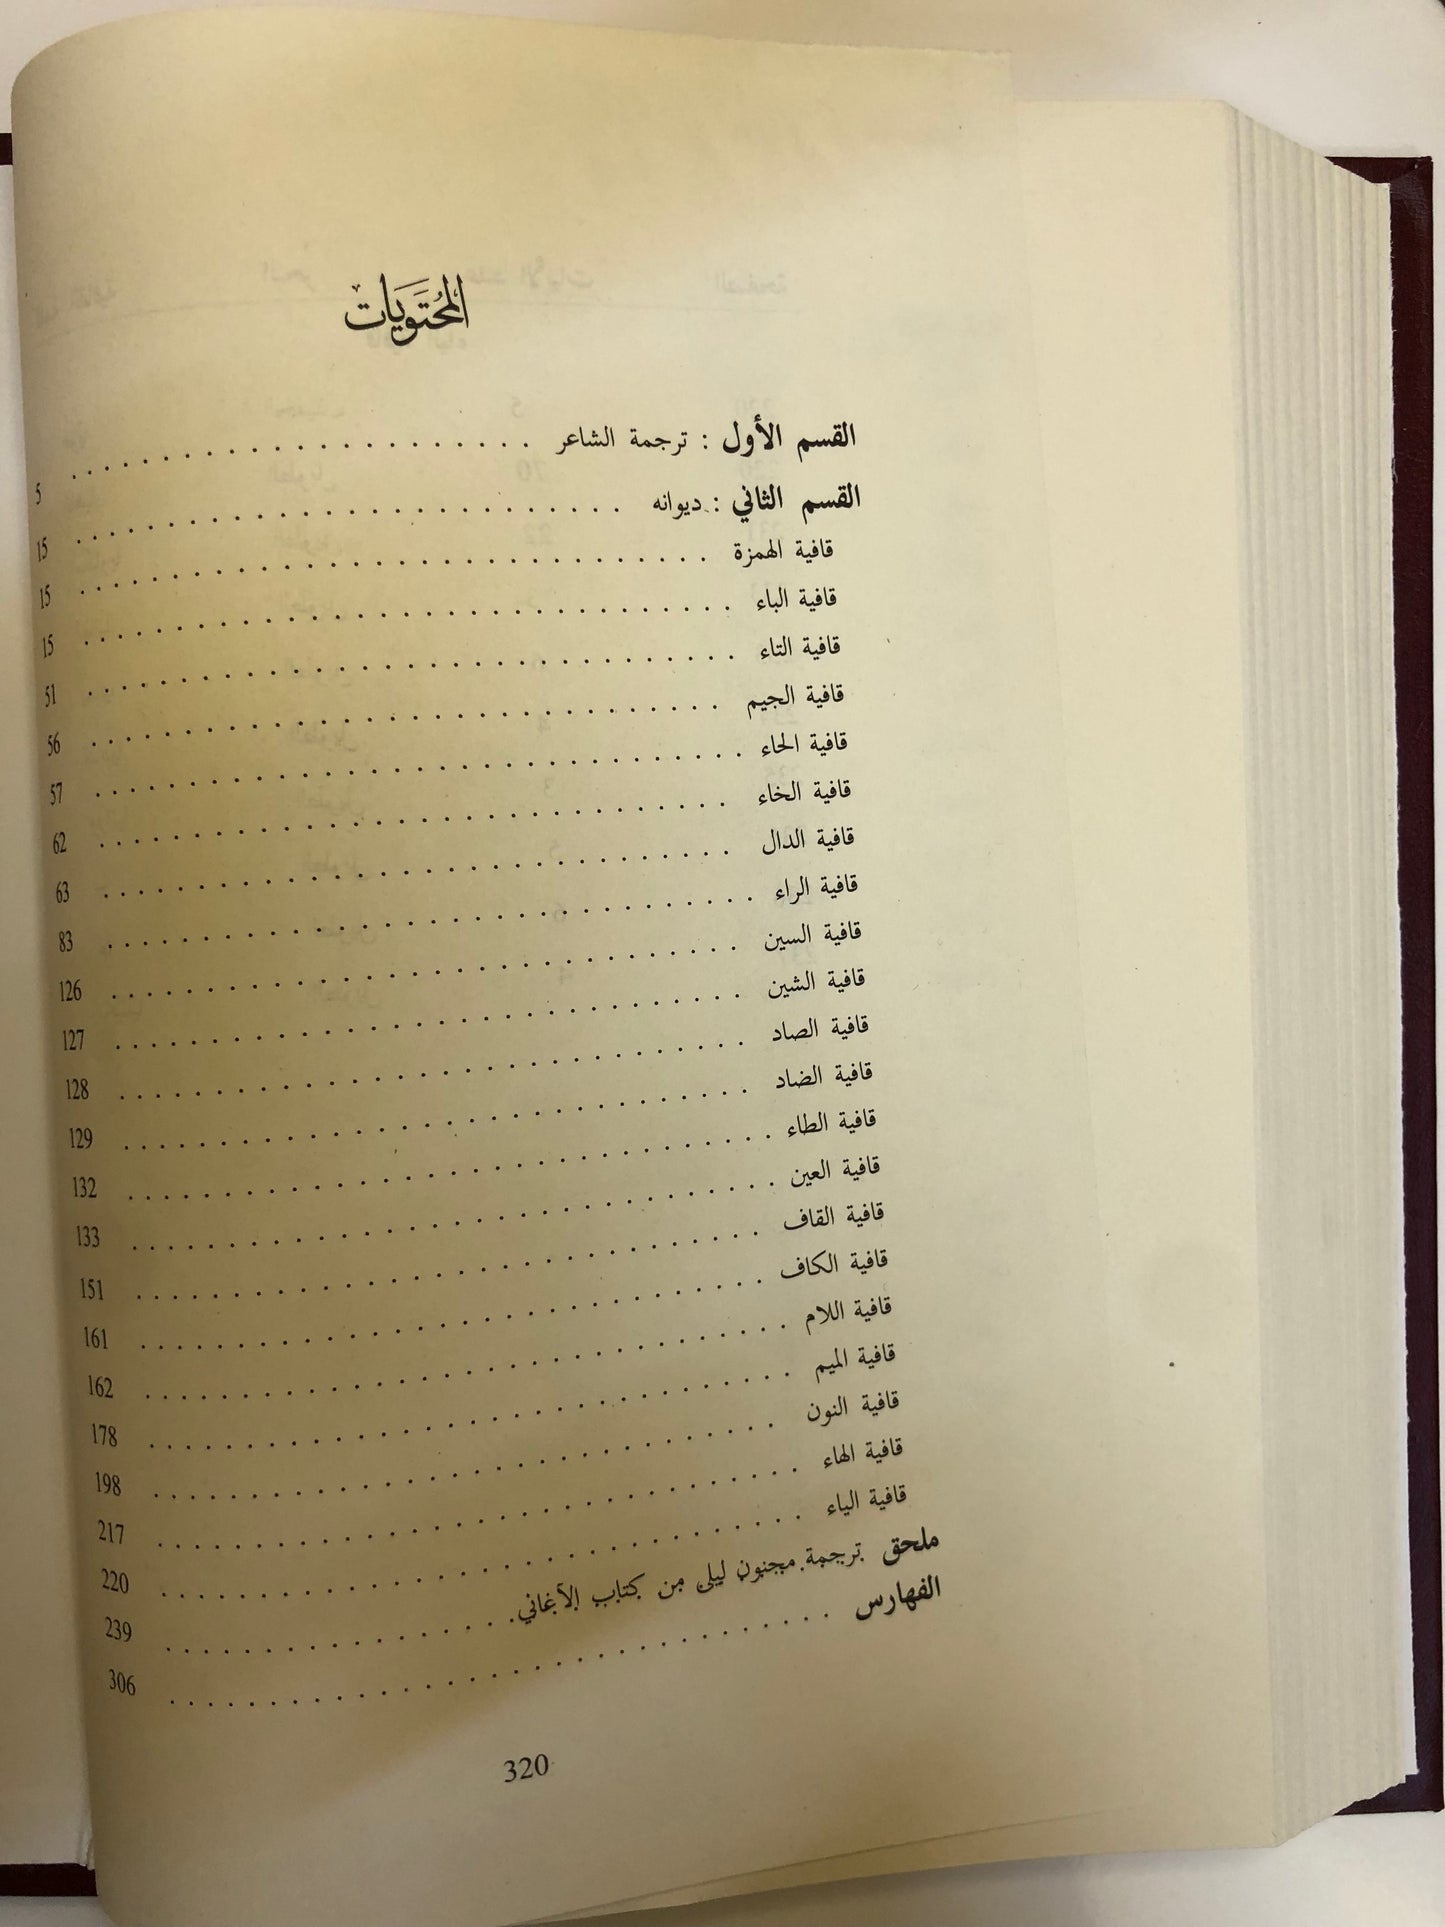 المُحتَوَيات
القسم الأول : ترجمة الشاعر . . . . . . . . . . 5
القسم الثاني : ديوانه . . . . . . . . . . 15
قافية الهمزة . . . . . . . . . . 15
قافية الباء . . . . . . . . . . 15
قافية التاء . . . . . . . . . . 51
قافية الجيم . . . . . . . . . . 56
قافية الحاء . . . . . . . . . . 57
قافية الخاء . . . . . . . . . . 62
قافية الدال . . . . . . . . . . 63
قافية الراء . . . . . . . . . . 83
قافية السين . . . . . . . . . . 126
قافية الشين . . . . . . . . . . 127
قافية الصاد . . . . . . . . . . 128
قافية الضاد . . . . . . . . . . 129
قافية الطاء . . . . . . . . . . 132
قافية العين . . . . . . . . . . 133
قافية القاف . . . . . . . . . . 151
قافية الكاف . . . . . . . . . . 161
قافية اللام . . . . . . . . . . 162
قافية الميم . . . . . . . . . . 178
قافية النون . . . . . . . . . . 198
قافية الهاء . . . . . . . . . . 217
قافية الياء . . . . . . . . . . 220
ملحق ترجمة مجنون ليلى من كتاب الأغاني . . . . . . . . . . 239
الفهارس . . . . . . . . . . 306
320